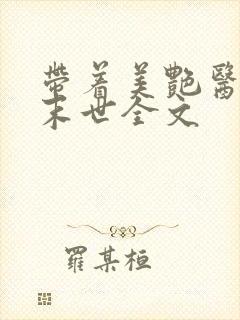 帶着美艷醫
末世全文
羅某桓